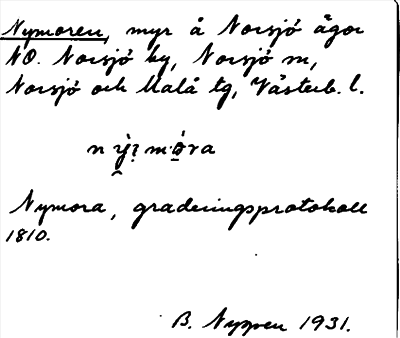 Nymoren, myr å Norsjö ägor
NO. Norsjö by, Norsjö sn,
Norsjö och Malå tg, Västerb. l.
Nymora, graderingsprotokoll
1810.
B. 1931.